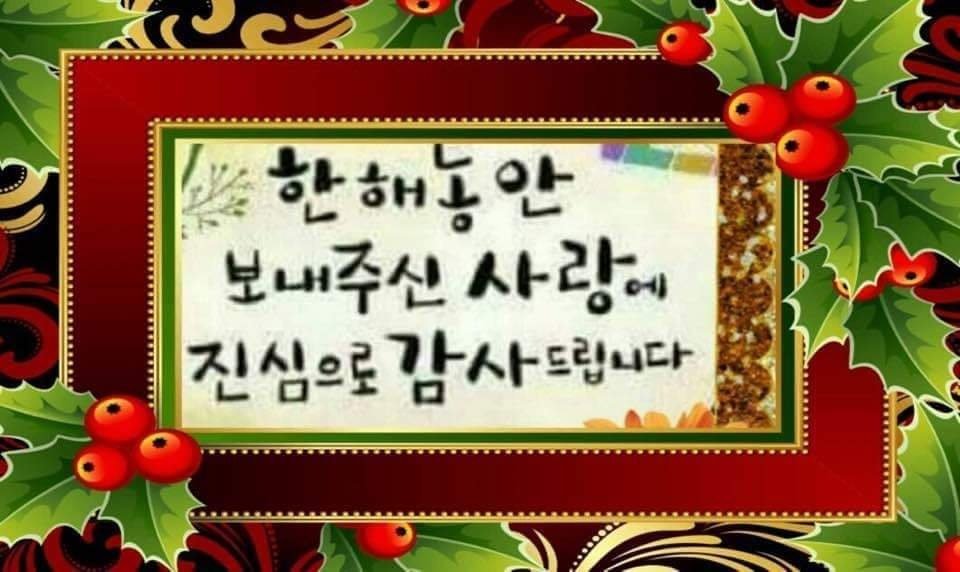 한해동안
보내주신 사랑에
진심으로 감사드립니다